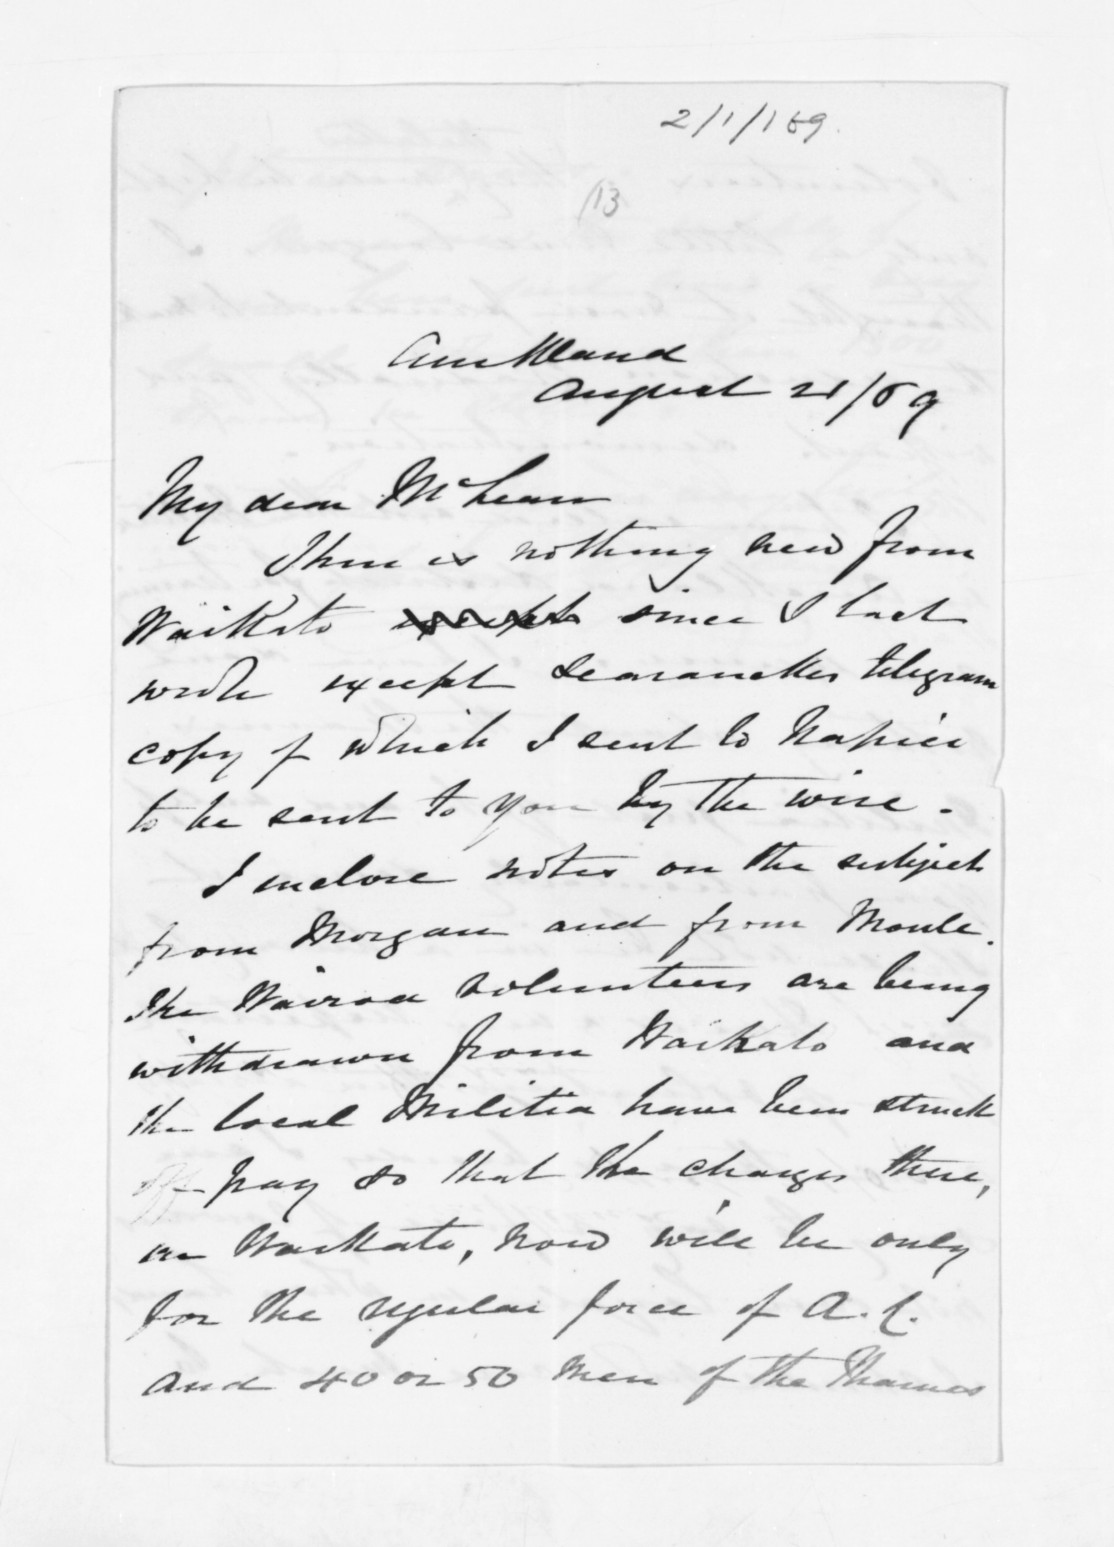 2/1/169.
13
Auckland
August 21/69
My dear McLean
There is nothing new from
Waikato except since I last
wrote except Searanckes telegram
copy of which I sent to Napier
to be sent to you by the wire.
I inclose notes on the subject
from Morgan and from Moule.
The Wairoa volunteers are being
withdrawn from Waikato and
the local Militia have been struck
off pay so that the charges there,
in Waikato, now will be only
for the regular force of A.C.
and 40 or 50 men of the Thames